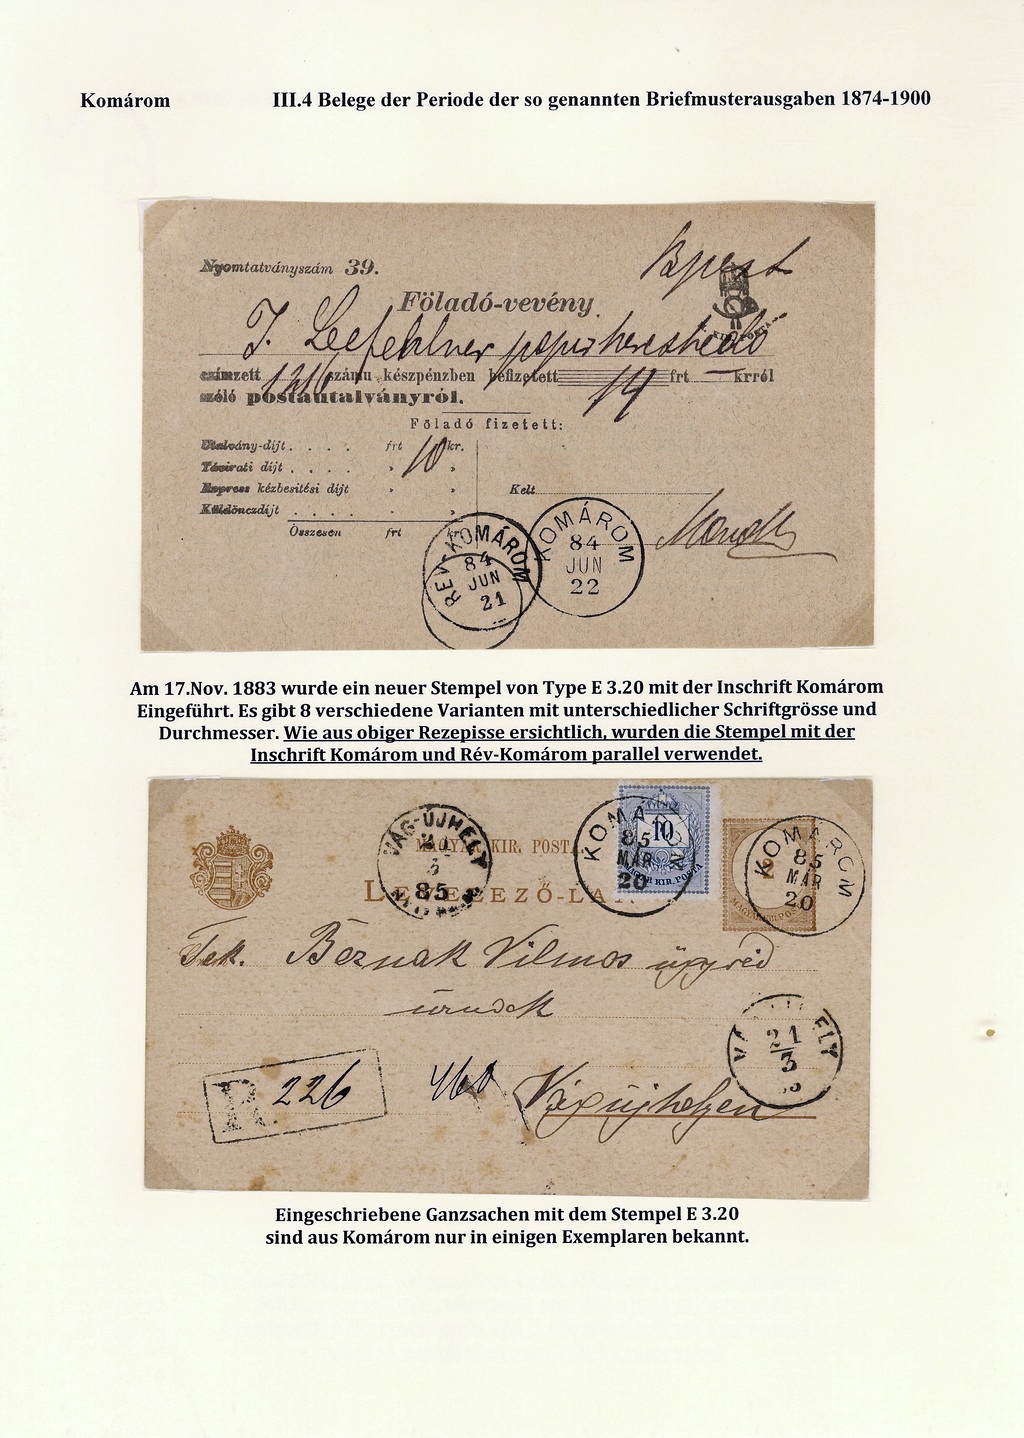 Komárom III.4 Belege der Periode der so genannten Briefmusterausgaben 1874-1900
Bpest
Nyomtatványszám 39.
Föladó-vevény
KIR. POSTA
J. Lefehlner papirkereskedő
czimzett 1216 számu készpénzben befizetett 14 frt krról
szóló postautalványról.
Föladó fizetett:
Utalvány-díjt . . . . frt 10 kr.
Távirati díjt . . . . " "
Express kézbesitési díjt " "
Küldönczdíjt . . . . " "
Kelt
Összesen frt
RÉV-KOMÁROM
84
JUN
21
KOMÁROM
84
JUN
22
Am 17.Nov. 1883 wurde ein neuer Stempel von Type E 3.20 mit der Inschrift Komárom
Eingeführt. Es gibt 8 verschiedene Varianten mit unterschiedlicher Schriftgrösse und
Durchmesser. Wie aus obiger Rezepisse ersichtlich, wurden die Stempel mit der
Inschrift Komárom und Rév-Komárom parallel verwendet.
VÁG-ÚJHELY
3
85
MAGYAR KIR. POSTA.
LEVELEZŐ-LA
KOMÁROM
85
MÁR
20
10
MAGYAR KIR. POSTA
2
MAGYAR KIR. POSTA
KOMÁROM
85
MÁR
20
Tek. Beznak Vilmos ügyvéd
úrnak
V ELY
21
3
R. 226
460
Vágújhelyen
Eingeschriebene Ganzsachen mit dem Stempel E 3.20
sind aus Komárom nur in einigen Exemplaren bekannt.